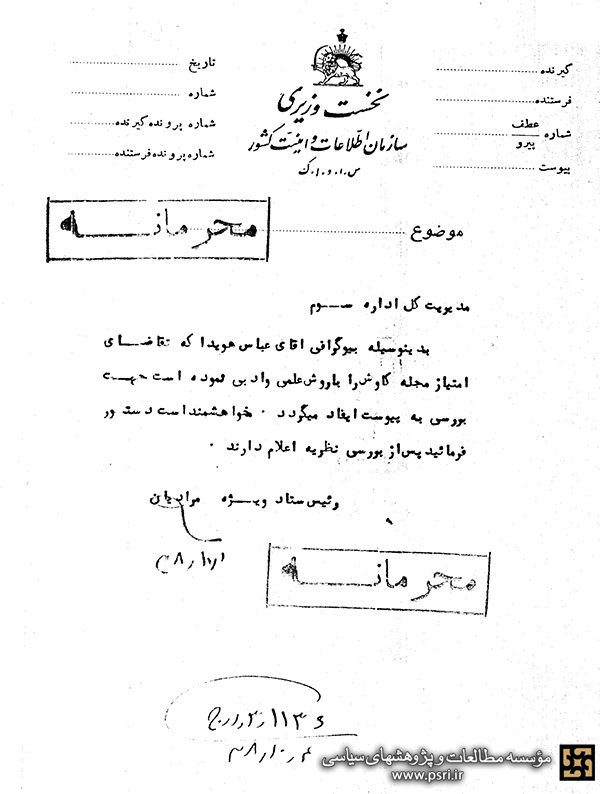 نخست وزیری
سازمان اطلاعات و امنیت کشور
س.ا.و.ا.ک
گیرنده
فرستنده
شماره عطف
پیرو
پیوست
تاریخ
شماره
شماره پرونده گیرنده
شماره پرونده فرستنده
موضوع
محرمانه
مدیریت کل اداره سوم
بدینوسیله بیوگرافی آقای عباس هویدا که تقاضای
امتیاز مجله کاوش را باروش علمی وادبی نموده است جهت
بررسی به پیوست ایفاد میگردد . خواهشمند است دستور
فرمائید پس از بررسی نظریه اعلام دارند .
رئیس ستاد ویژه مرادیان
محرمانه
مؤسسه مطالعات و پژوهشهای سیاسی
www.psri.ir